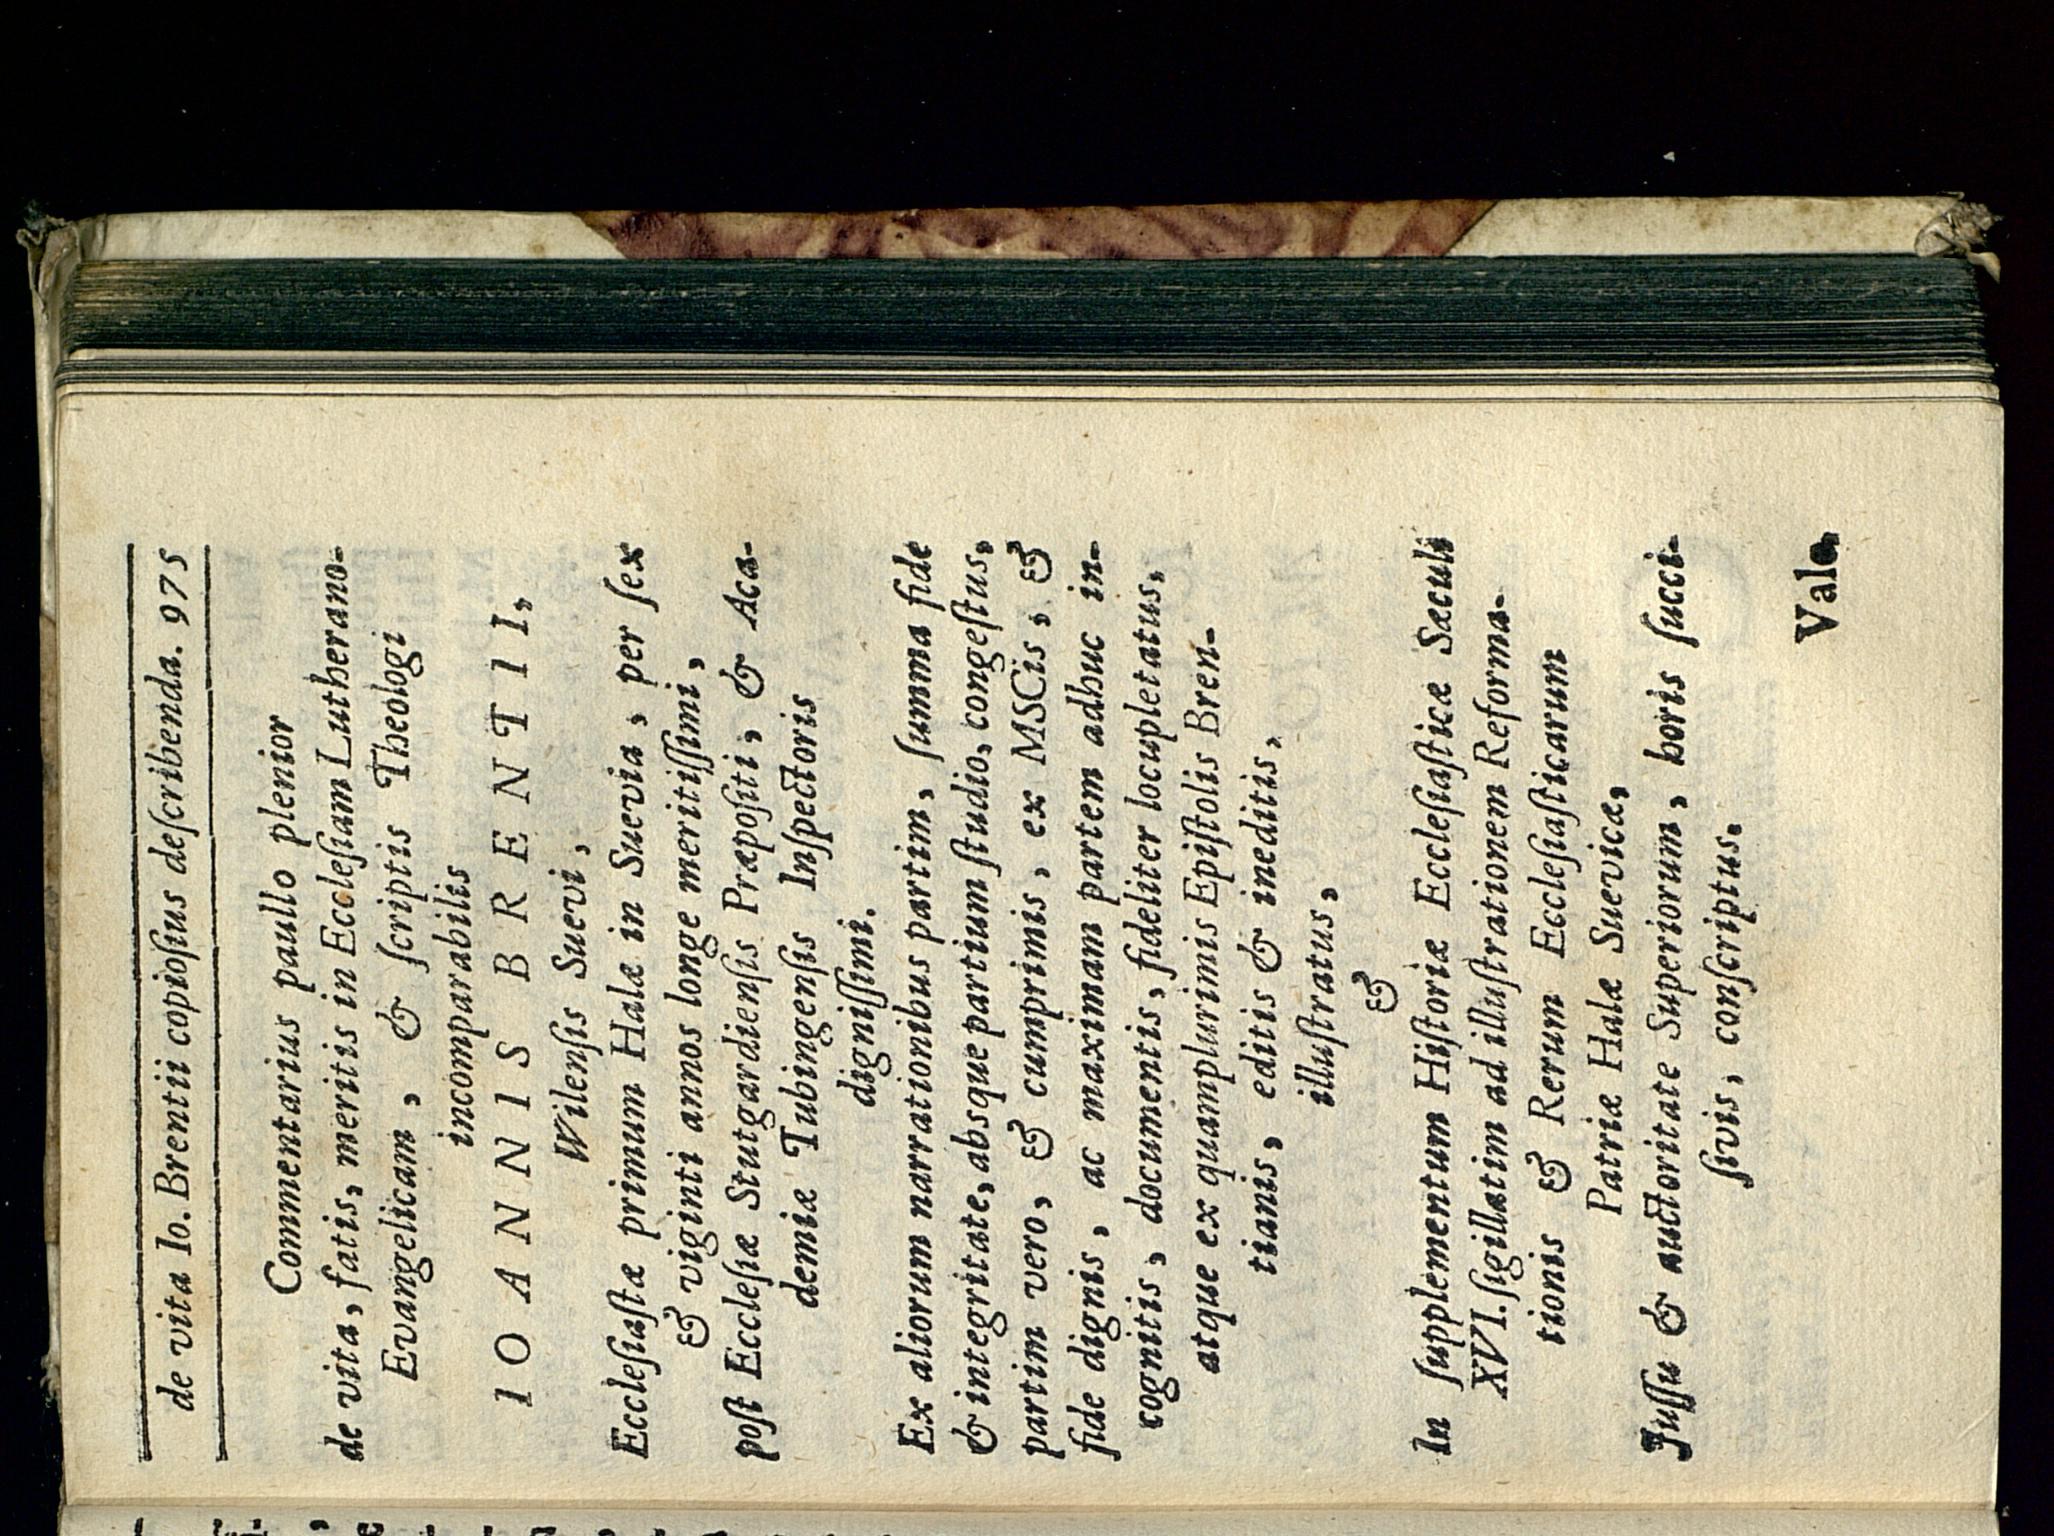 de vita Io. Brentii copioſius deſcribenda. 975
Commentarius paullo plenior
de vita, fatis, meritis in Eccleſiam Lutherano-
Evangelicam, & ſcriptis Theologi
incomparabilis
IOANNIS BRENTII,
Wilenſis Suevi,
Eccleſiaſtæ primum Halæ in Suevia, per ſex
& viginti annos longe meritiſſimi,
poſt Eccleſiæ Stutgardienſis Præpoſiti, & Aca-
demiæ Tubingenſis Inſpectoris
digniſſimi.
Ex aliorum narrationibus partim, ſumma fide
& integritate, absque partium ſtudio, congeſtus,
partim vero, & cumprimis, ex MSCis, &
fide dignis, ac maximam partem adhuc in-
cognitis, documentis, fideliter locupletatus,
atque ex quamplurimis Epiſtolis Bren-
tianis, editis & ineditis,
illuſtratus,
&
In ſupplementum Hiſtoriæ Eccleſiaſticæ Sæculi
XVI. ſigillatim ad illuſtrationem Reforma-
tionis & Rerum Eccleſiaſticarum
Patriæ Halæ Suevicæ,
Juſſu & auctoritate Superiorum, horis ſucci-
ſivis, conſcriptus.
Vale,